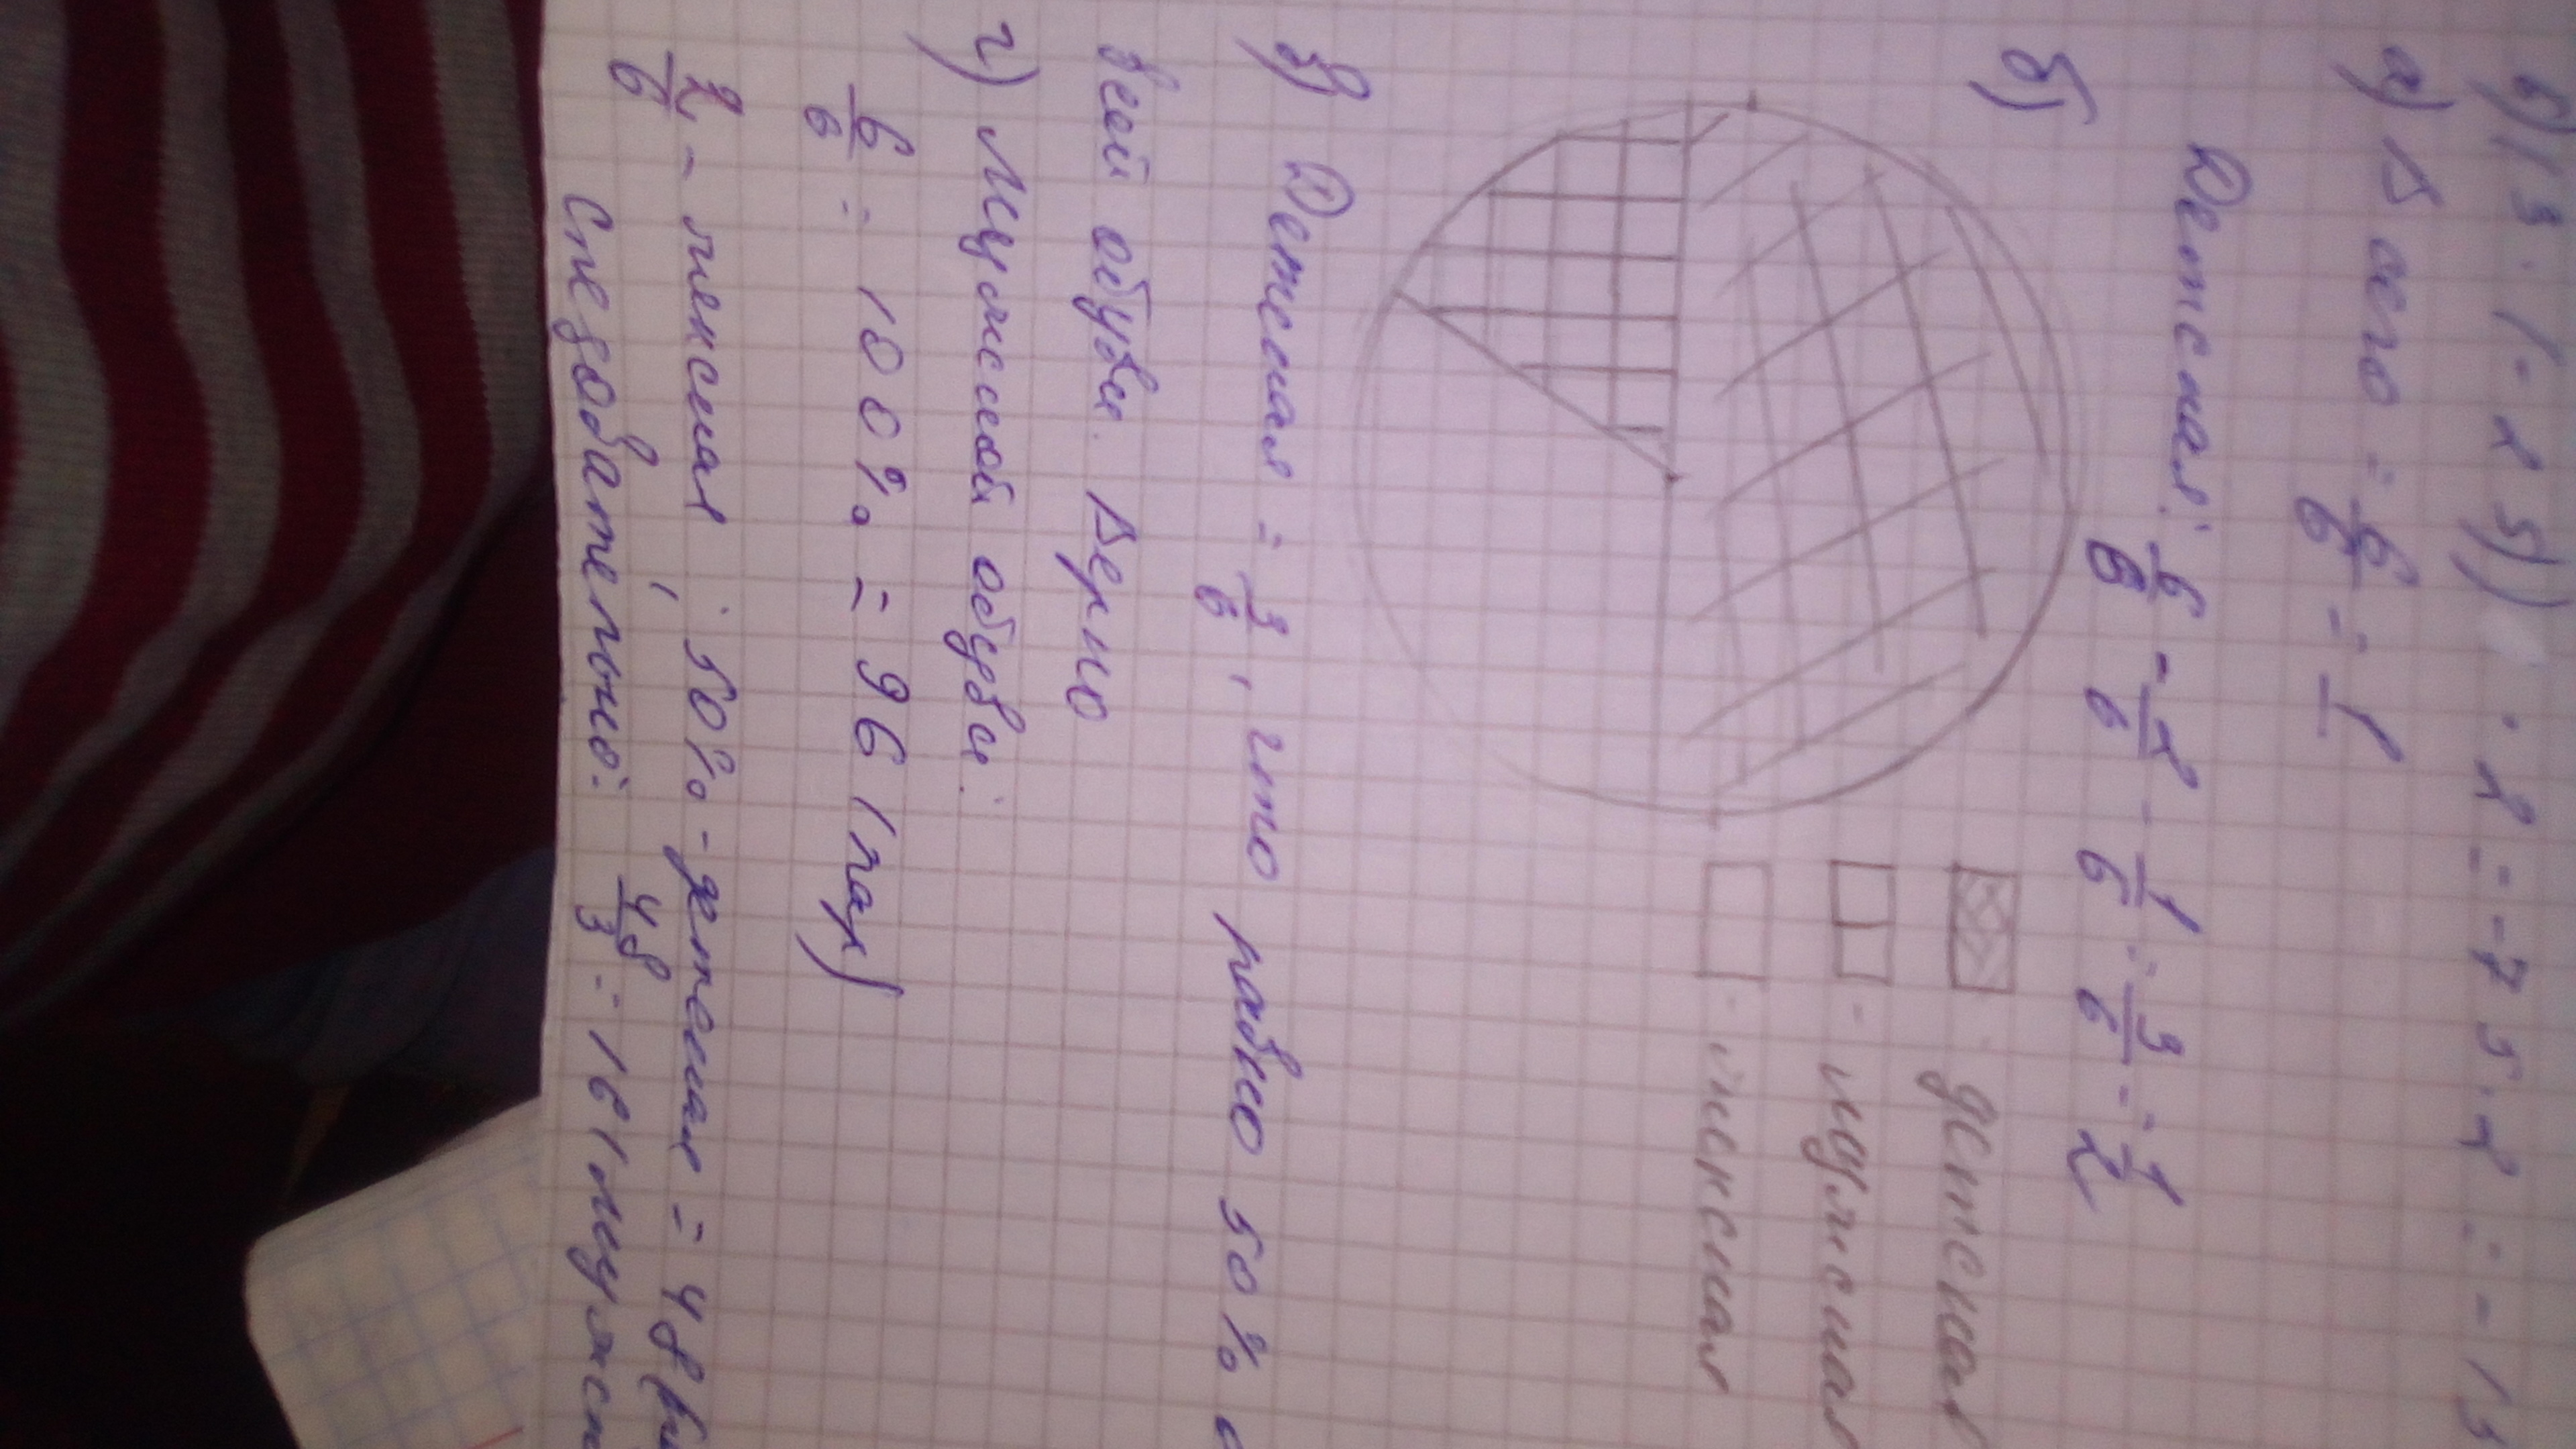 а) Всего = 6/6 = 1
Детская: 6/6 - 2/6 - 1/6 = 3/6 = 1/2
б)
детская
- мужская
- женская
в) Детская = 3/6, что равно 50%
всей обуви. Верно
г) Мужской обуви:
6/6 = 100% = 96 (пар)
2/6 - женская, 50% - детская = 48
Следовательно: 48/3 = 16